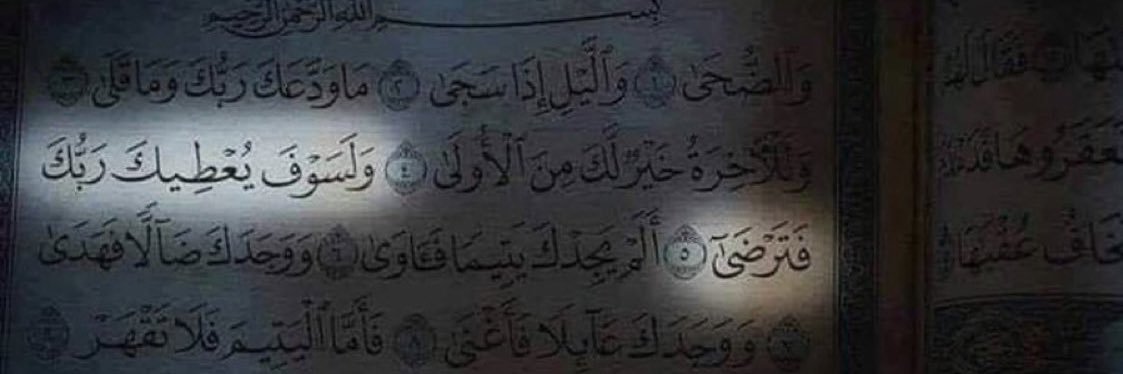 بِسْمِ ٱللَّهِ ٱلرَّحْمَٰنِ ٱلرَّحِيمِ
وَٱلضُّحَىٰ ١ وَٱلَّيْلِ إِذَا سَجَىٰ ٢ مَا وَدَّعَكَ رَبُّكَ وَمَا قَلَىٰ ٣
وَلَلْأٓخِرَةُ خَيْرٌ لَّكَ مِنَ ٱلْأُولَىٰ ٤ وَلَسَوْفَ يُعْطِيكَ رَبُّكَ
فَتَرْضَىٰٓ ٥ أَلَمْ يَجِدْكَ يَتِيمًا فَـَٔاوَىٰ ٦ وَوَجَدَكَ ضَآلًّا فَهَدَىٰ
٧ وَوَجَدَكَ عَآئِلًا فَأَغْنَىٰ ٨ فَأَمَّا ٱلْيَتِيمَ فَلَا تَقْهَرْ ٩
فَقَالَ
عُقْبَٰهَا